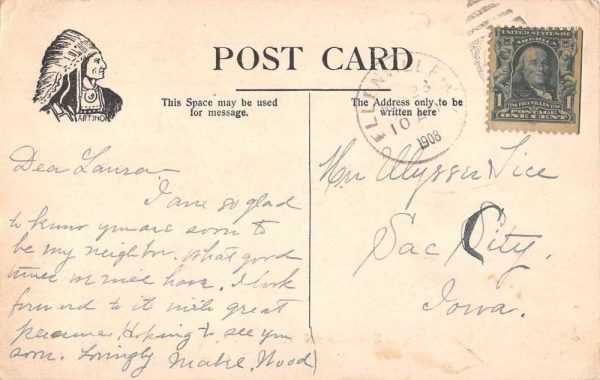 POST CARD
UNITED STATES OF AMERICA
1 FRANKLIN 1
POSTAGE
ONE CENT
1908
10
ARTINO
This Space may be used
for message.
The Address only to be
written here
Dear Laura
I am so glad
to know you are soon to
be my neighbor. What good
times we will have. I look
forward to it with great
pleasure. Hoping to see you
soon. Lovingly Wood
Ulysses Tice
Sac City,
Iowa.